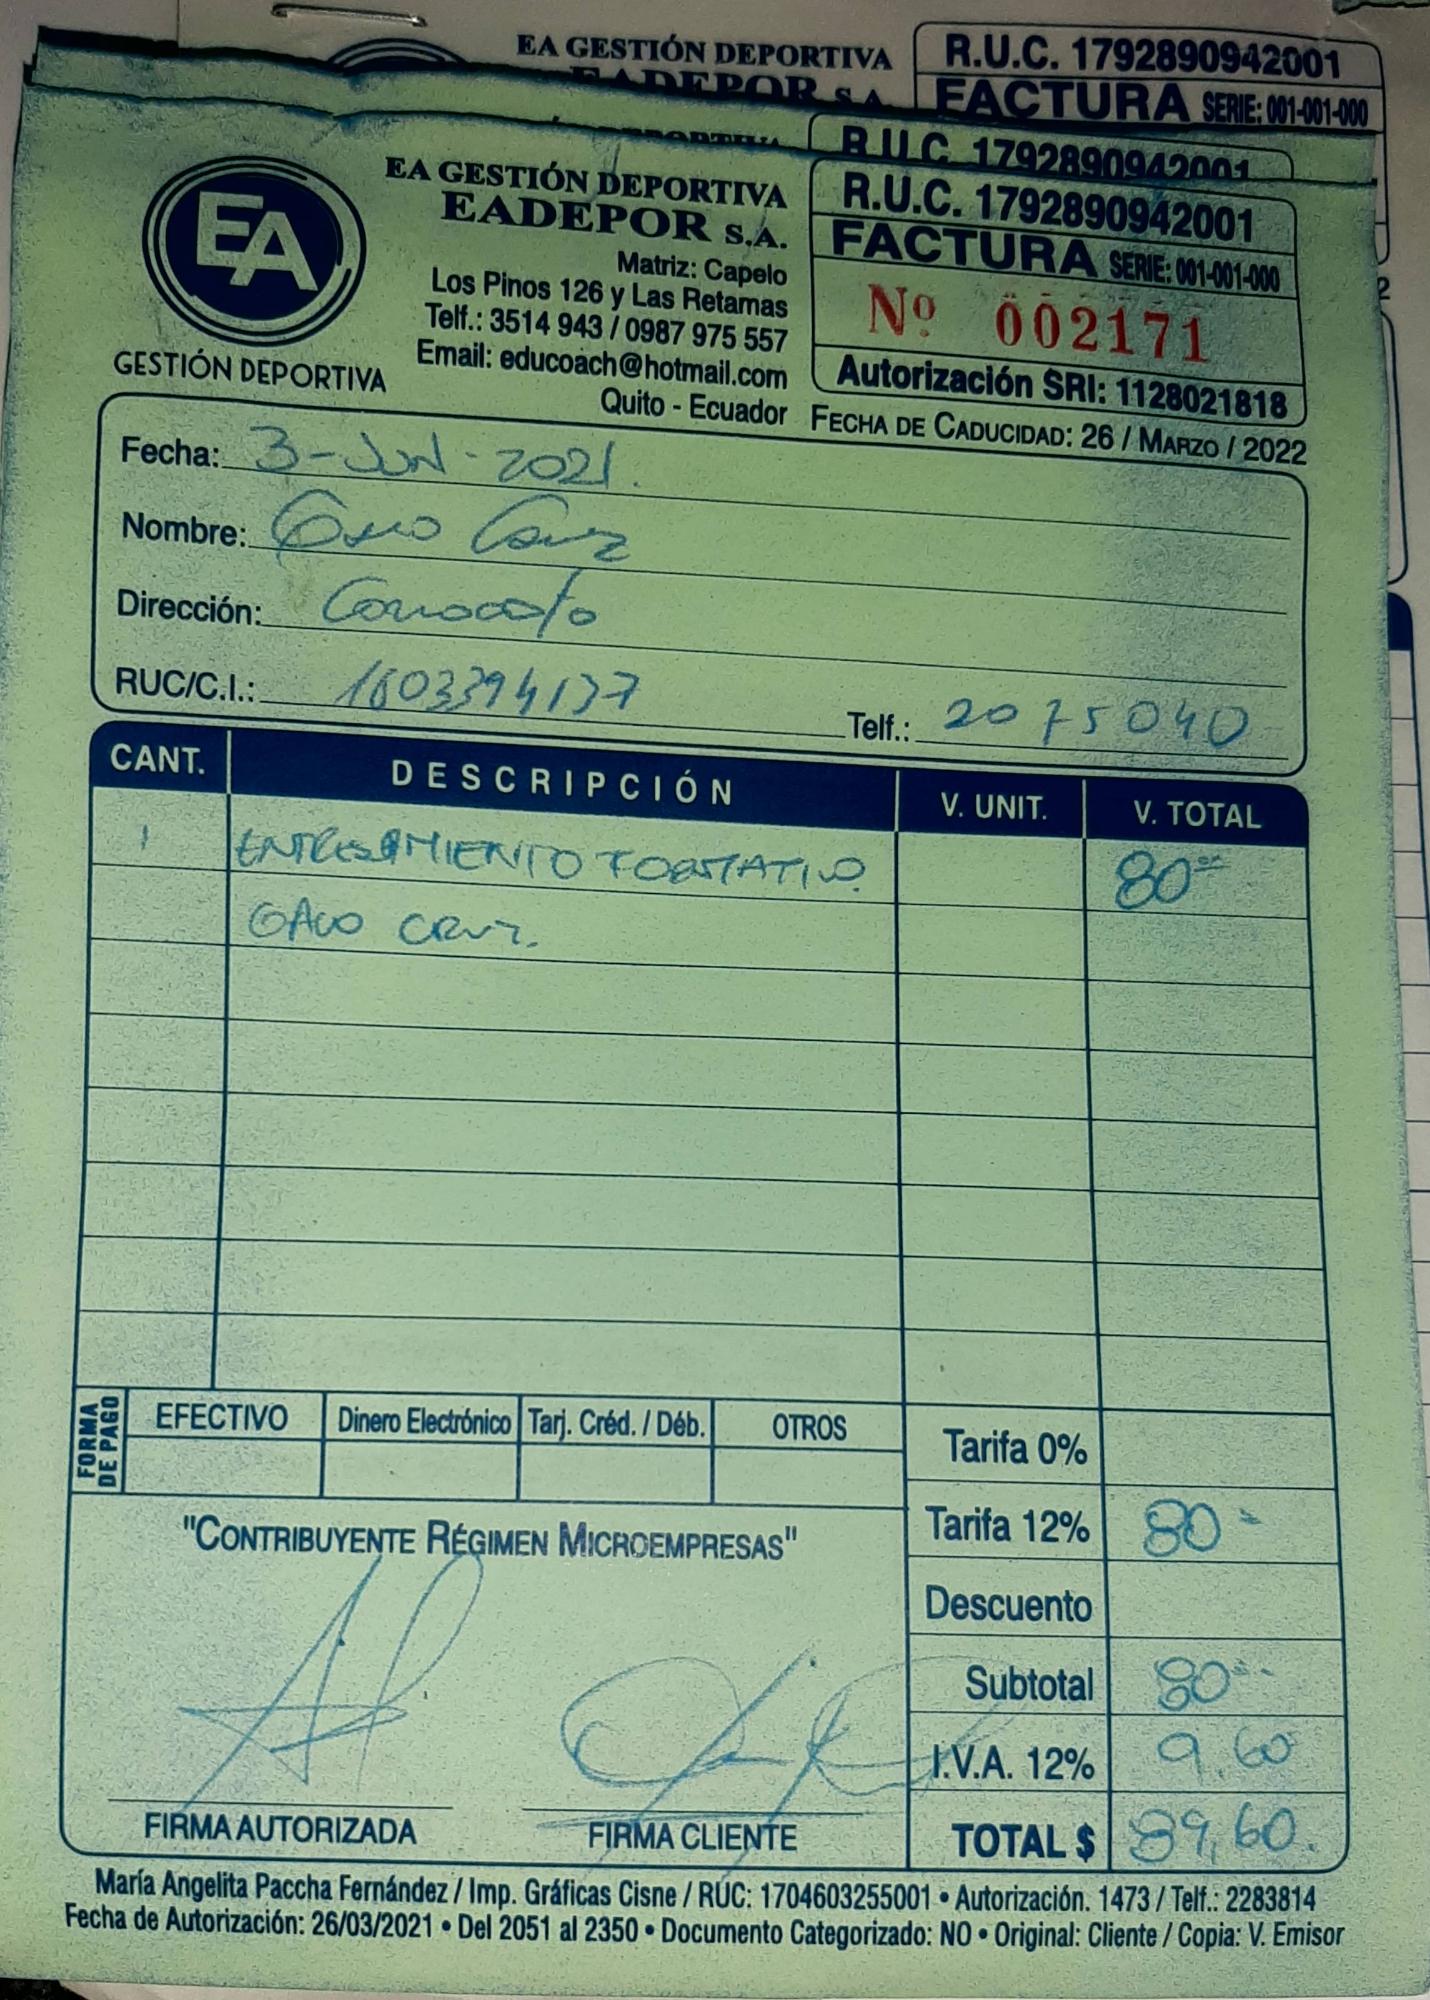 EA GESTIÓN DEPORTIVA
EADEPOR S.A.
R.U.C. 1792890942001
FACTURA SERIE: 001-001-000
R.U.C. 1792890942001
EA
GESTIÓN DEPORTIVA
EA GESTIÓN DEPORTIVA
EADEPOR S.A.
Matriz: Capelo
Los Pinos 126 y Las Retamas
Telf.: 3514 943 / 0987 975 557
Email: educoach@hotmail.com
Quito - Ecuador
R.U.C. 1792890942001
FACTURA SERIE: 001-001-000
Nº 002171
Autorización SRI: 1128021818
FECHA DE CADUCIDAD: 26 / MARZO / 2022
Fecha: 3-JUN-2021.
Nombre: Cruz
Dirección: Conocoto
RUC/C.I.: 1603394137
Telf.: 2075040
CANT. DESCRIPCIÓN V. UNIT. V. TOTAL
1 ENTRENAMIENTO FORMATIVO. 80
CRUZ.
FORMA DE PAGO
EFECTIVO Dinero Electrónico Tarj. Créd. / Déb. OTROS
Tarifa 0%
Tarifa 12% 80-
Descuento
Subtotal 80
I.V.A. 12% 9.60
TOTAL $ 89,60.
"CONTRIBUYENTE RÉGIMEN MICROEMPRESAS"
FIRMA AUTORIZADA FIRMA CLIENTE
María Angelita Paccha Fernández / Imp. Gráficas Cisne / RUC: 1704603255001 • Autorización. 1473 / Telf.: 2283814
Fecha de Autorización: 26/03/2021 • Del 2051 al 2350 • Documento Categorizado: NO • Original: Cliente / Copia: V. Emisor